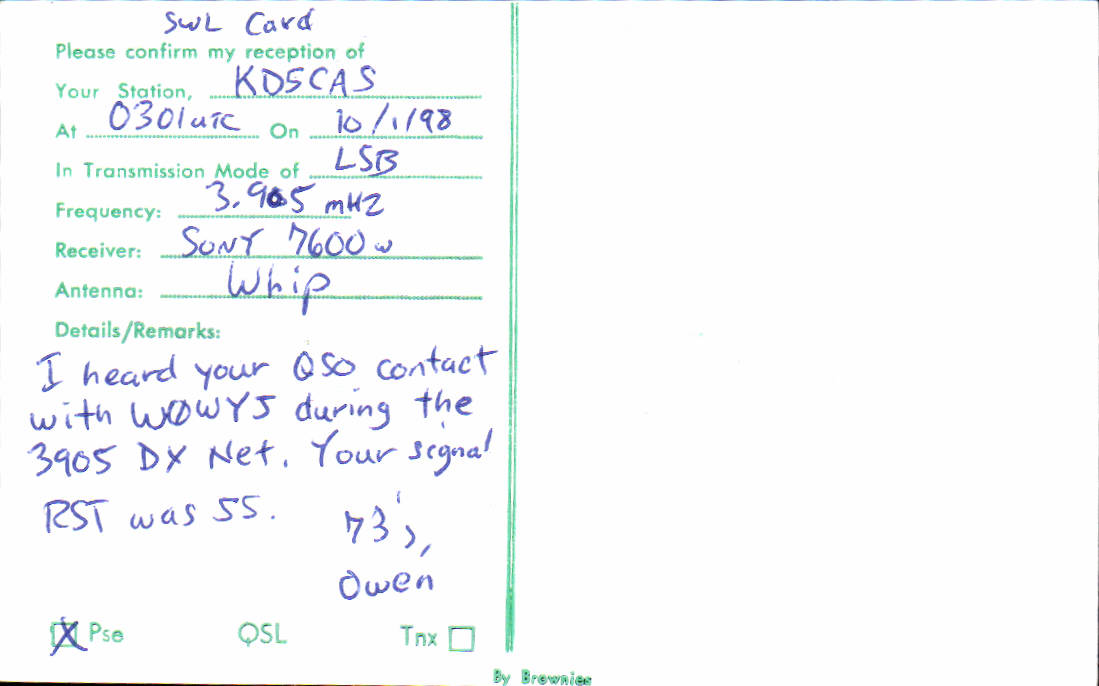 SWL Card
Please confirm my reception of
Your Station, KD5CAS
At 0301 UTC On 10/1/98
In Transmission Mode of LSB
Frequency: 3.905 mHz
Receiver: SONY 7600W
Antenna: Whip
Details/Remarks:
I heard your QSO contact
with WØWYJ during the
3905 DX Net. Your signal
RST was 55.
73's,
Owen
X Pse QSL Tnx
By Brownies